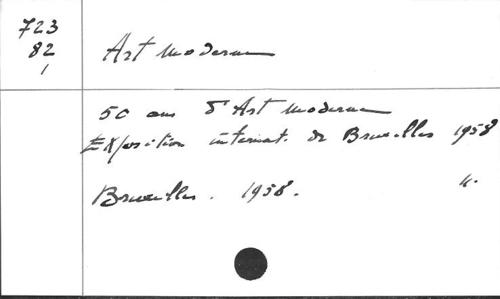 723
82
1
Art moderne
50 ans d'Art moderne
Exposition internat. de Bruxelles 1958
Bruxelles. 1958.